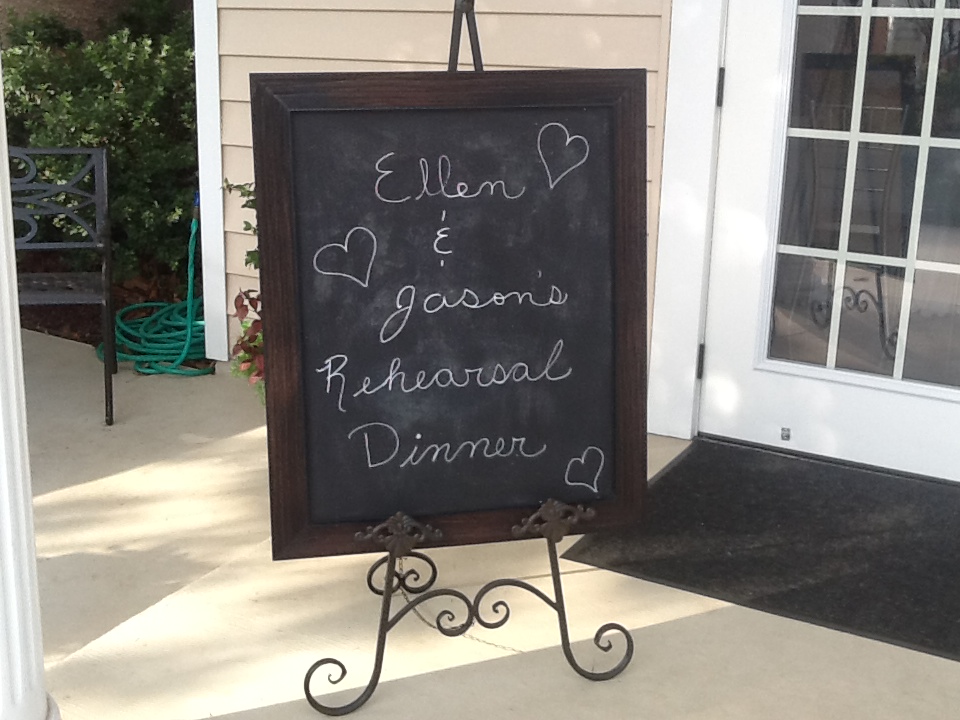 Ellen
&
Jason's
Rehearsal
Dinner